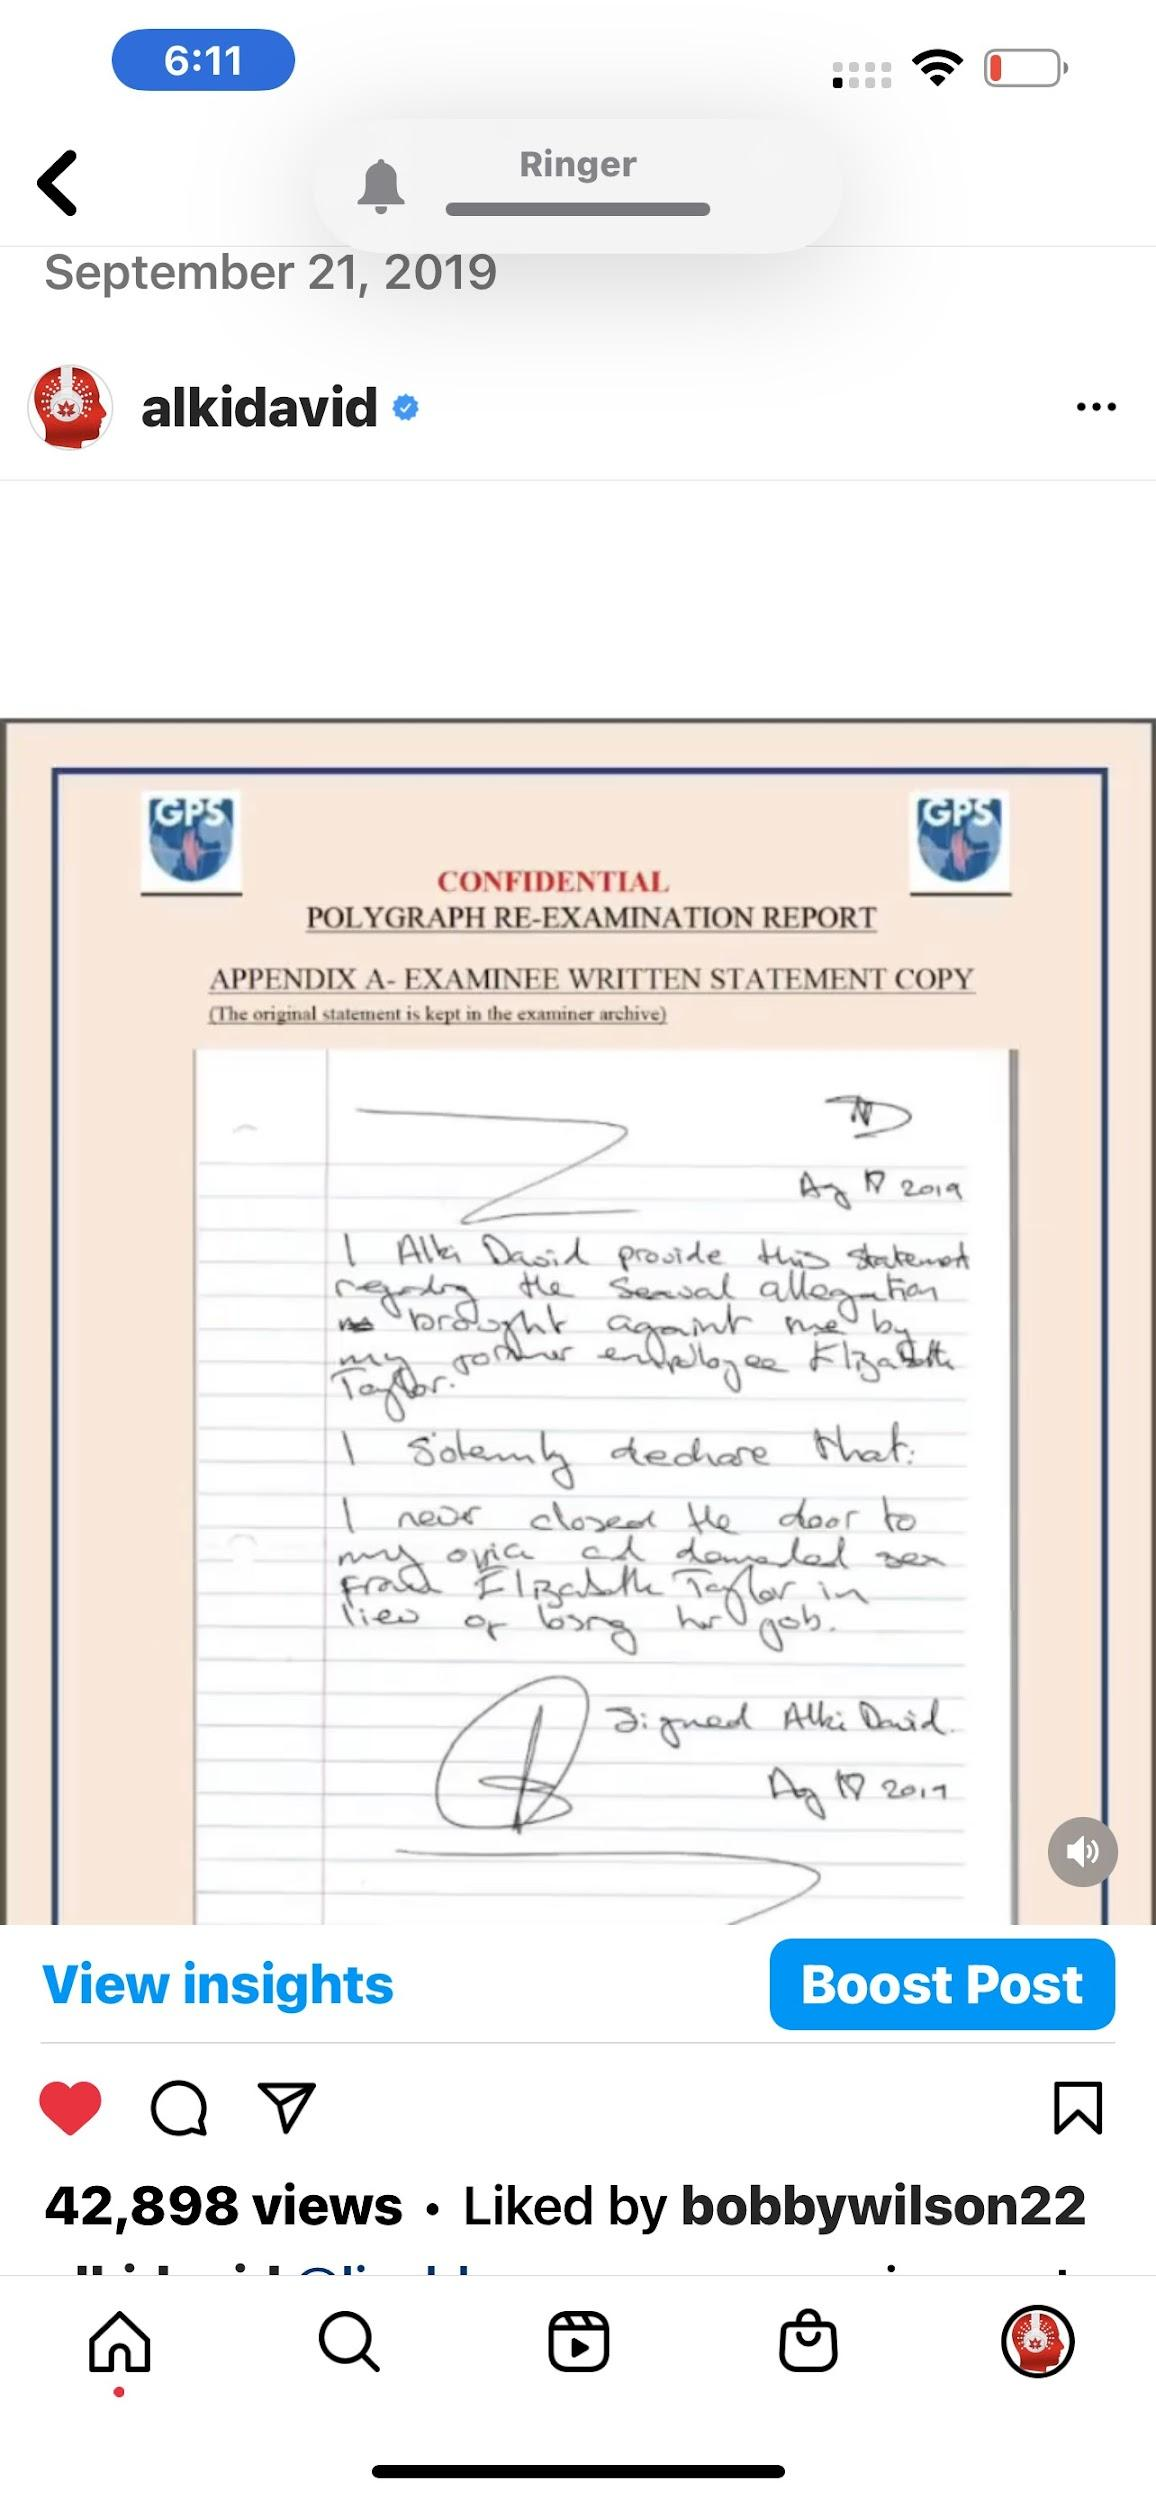 6:11
Ringer
September 21, 2019
alkidavid
GPS
GPS
CONFIDENTIAL
POLYGRAPH RE-EXAMINATION REPORT
APPENDIX A- EXAMINEE WRITTEN STATEMENT COPY
(The original statement is kept in the examiner archive)
2019
I Alki David provide this statement
regarding the sexual allegation
brought against me by
my former employee Elizabeth
Taylor.
I solemnly declare that:
I never closed the door to
my ofice and demanded sex
from Elizabeth Taylor in
lieu of losing her job.
Signed Alki David.
2019
View insights
Boost Post
42,898 views • Liked by bobbywilson22